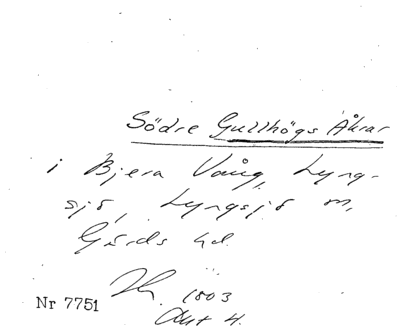 Södre Gullhögs Åkrar
i Bjera Vång, Lyng-
sjö, Lyngsjö sn,
Gärds hd.
1803
Akt 4.
Nr 7751